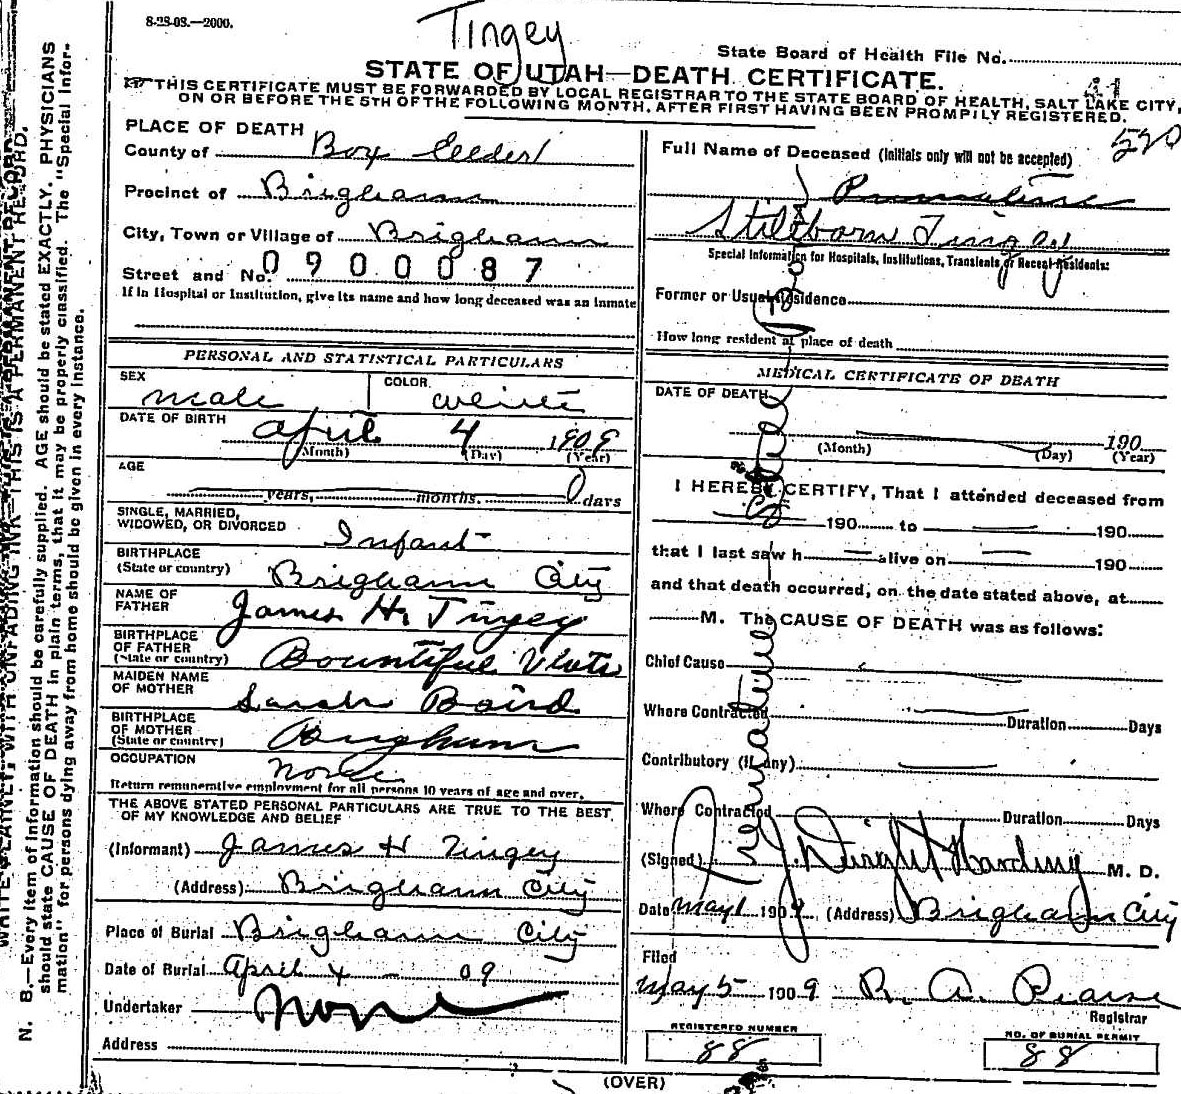 8-28-08.—2000.
Tingey
State Board of Health File No.
STATE OF UTAH—DEATH CERTIFICATE.
41
THIS CERTIFICATE MUST BE FORWARDED BY LOCAL REGISTRAR TO THE STATE BOARD OF HEALTH, SALT LAKE CITY,
ON OR BEFORE THE 5TH OF THE FOLLOWING MONTH, AFTER FIRST HAVING BEEN PROMPILY REGISTERED.
520
PLACE OF DEATH
County of Box Elder
Precinct of Brigham
City, Town or Village of Brigham
Street and No. 0900087
If in Hospital or Institution, give its name and how long deceased was an inmate
PERSONAL AND STATISTICAL PARTICULARS
SEX male COLOR white
DATE OF BIRTH April 4 1909
(Month) (Day) (Year)
AGE
years, months. 0 days
SINGLE, MARRIED,
WIDOWED, OR DIVORCED Infant
BIRTHPLACE
(State or country) Brigham City
NAME OF
FATHER James H. Tingey
BIRTHPLACE
OF FATHER
(State or country) Bountiful Utah
MAIDEN NAME
OF MOTHER Sarah Baird
BIRTHPLACE
OF MOTHER
(State or country) Brigham
OCCUPATION None
Return remunerative employment for all persons 10 years of age and over.
THE ABOVE STATED PERSONAL PARTICULARS ARE TRUE TO THE BEST
OF MY KNOWLEDGE AND BELIEF
(Informant) James H Tingey
(Address) Brigham City
Place of Burial Brigham City
Date of Burial April 4 - 09
Undertaker None
Address
Full Name of Deceased (Initials only will not be accepted)
Premature
Stillborn Tingey
Special Information for Hospitals, Institutions, Transients or Recent Residents:
Former or Usual Residence
How long resident at place of death
MEDICAL CERTIFICATE OF DEATH
DATE OF DEATH
190
(Month) (Day) (Year)
I HEREBY CERTIFY, That I attended deceased from
190 to 190
that I last saw h alive on 190
and that death occurred, on the date stated above, at
M. The CAUSE OF DEATH was as follows:
Chief Cause
Where Contracted Duration Days
Contributory (If any)
Where Contracted Duration Days
(Signed) J. Dwight Harding M. D.
Date May 1 1909 (Address) Brigham City
Filed
May 5 1909 R. A. Pearse
Registrar
REGISTERED NUMBER
88
NO. OF BURIAL PERMIT
88
(OVER)
Premature
WRITE PLAINLY, WITH UNFADING INK—THIS IS A PERMANENT RECORD.
N. B.—Every item of information should be carefully supplied. AGE should be stated EXACTLY. PHYSICIANS
should state CAUSE OF DEATH in plain terms, that it may be properly classified. The "Special Infor-
mation" for persons dying away from home should be given in every instance.